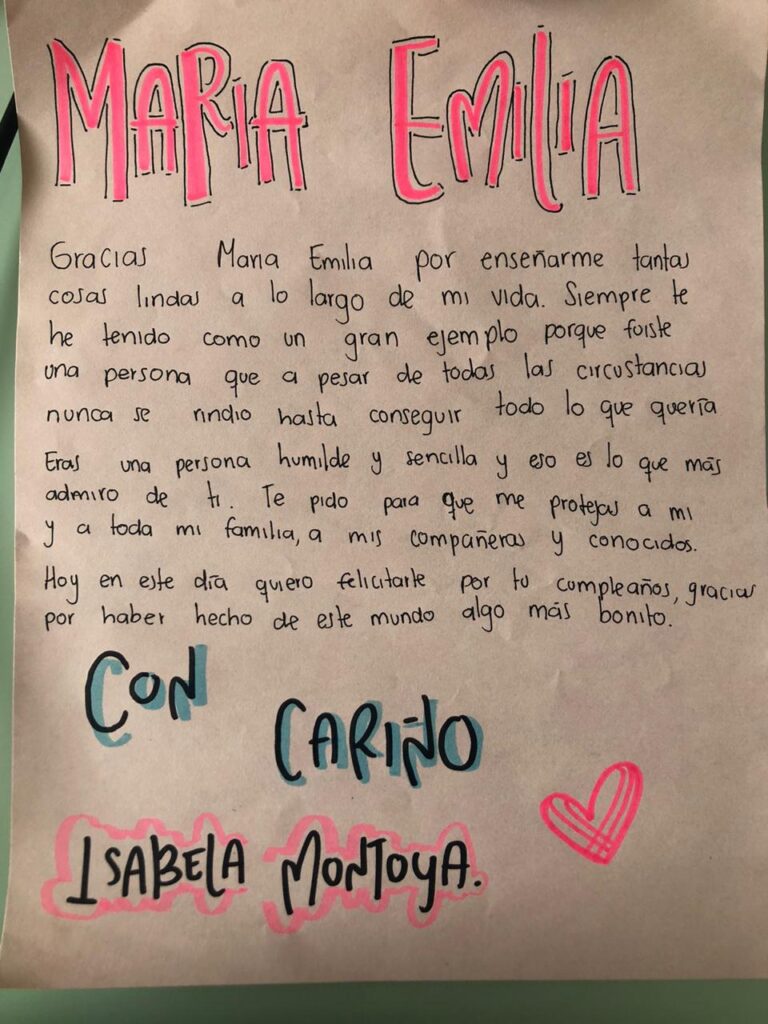 MARIA EMILIA
Gracias Maria Emilia por enseñarme tantas
cosas lindas a lo largo de mi vida. Siempre te
he tenido como un gran ejemplo porque fuiste
una persona que a pesar de todas las circustancias
nunca se rindio hasta conseguir todo lo que quería
Eras una persona humilde y sencilla y eso es lo que más
admiro de ti. Te pido para que me protejas a mi
y a toda mi familia, a mis compañeras y conocidos.
Hoy en este día quiero felicitarte por tu cumpleaños, gracias
por haber hecho de este mundo algo más bonito.
CON
CARIÑO
ISABELA MONTOYA.